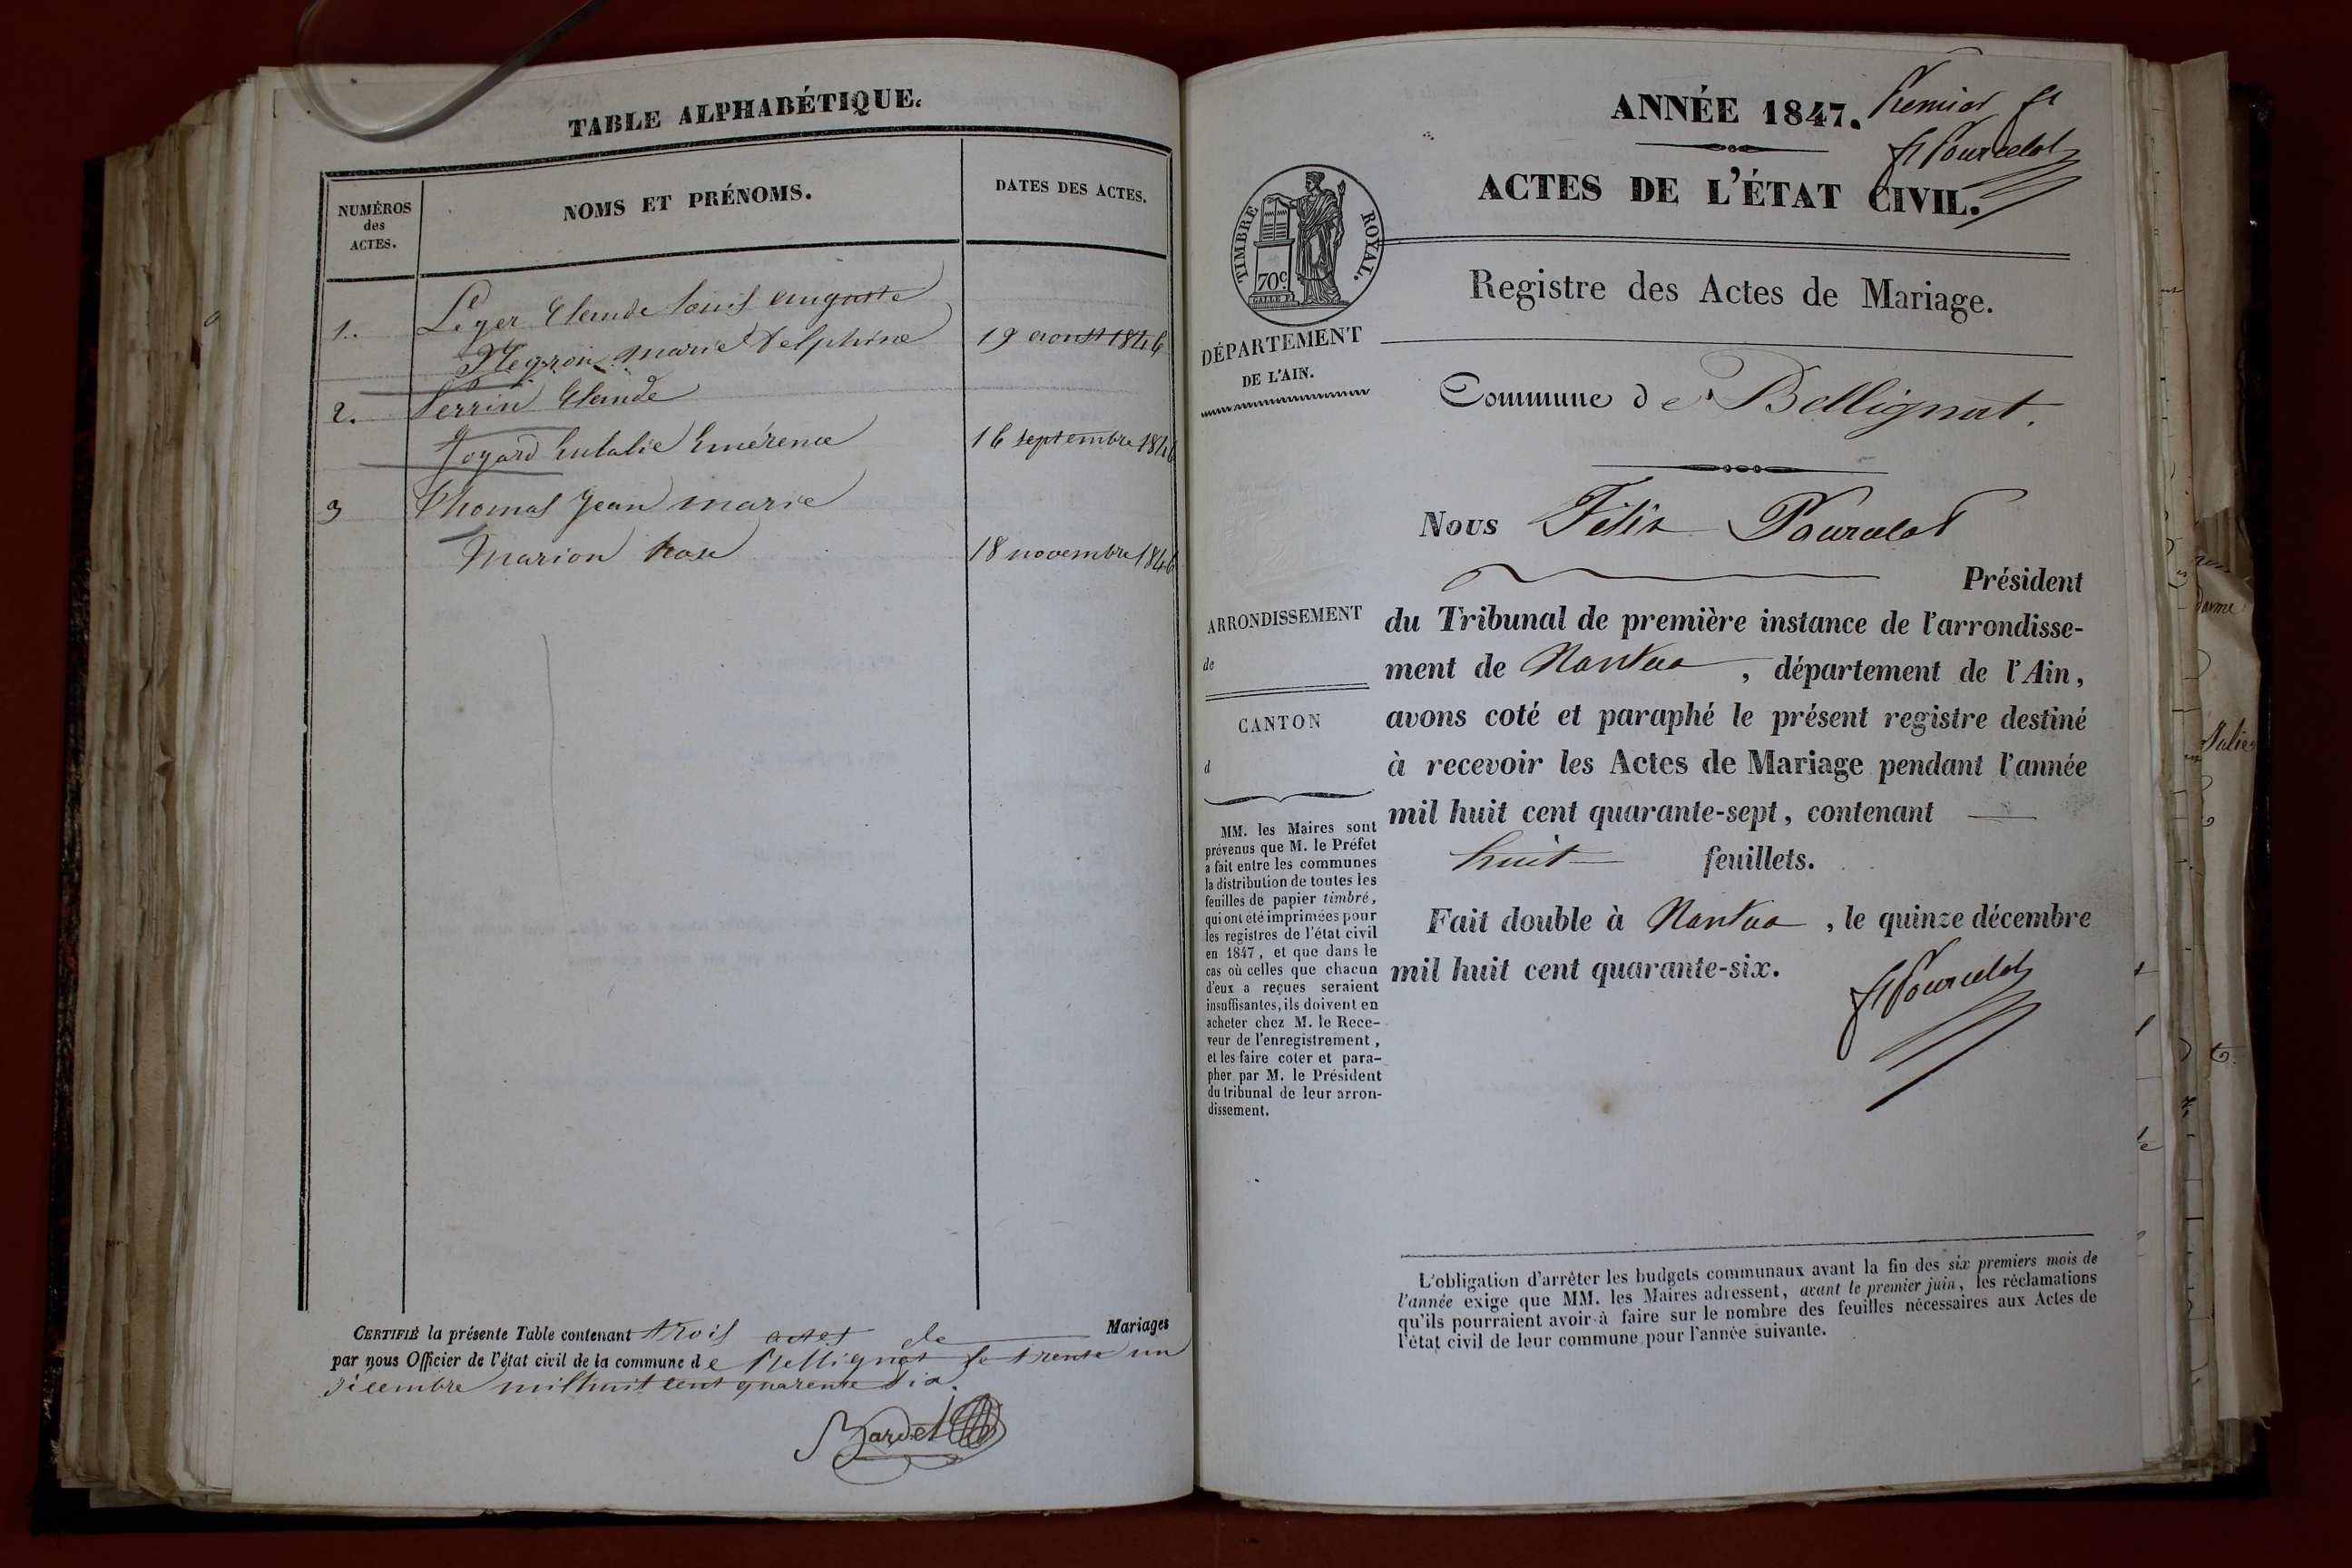 TABLE ALPHABÉTIQUE.
NUMÉROS
des
ACTES.
NOMS ET PRÉNOMS.
DATES DES ACTES.
1. Léger Claude louis auguste
marie Delphine 19 aoust 1846
2. Perrin Claude
Joyard Eulalie Emérence 16 septembre 1846
3 Thomas Jean marie
Marion Rose 18 novembre 1846
CERTIFIÉ la présente Table contenant trois actes de Mariages
par nous Officier de l'état civil de la commune de Bellignat le trente un
décembre mil huit cent quarente six.
Bardet
ANNÉE 1847.
Premier ft
f Pourcelot
ACTES DE L'ÉTAT CIVIL.
TIMBRE ROYAL.
70c
Registre des Actes de Mariage.
DÉPARTEMENT
DE L'AIN.
Commune de Bellignat.
Nous Félix Pourcelot
Président
du Tribunal de première instance de l'arrondisse-
ment de Nantua, département de l'Ain,
avons coté et paraphé le présent registre destiné
à recevoir les Actes de Mariage pendant l'année
mil huit cent quarante-sept, contenant
huit feuillets.
Fait double à Nantua, le quinze décembre
mil huit cent quarante-six.
f Pourcelot
ARRONDISSEMENT
de
CANTON
d
MM. les Maires sont
prévenus que M. le Préfet
a fait entre les communes
la distribution de toutes les
feuilles de papier timbré,
qui ont été imprimées pour
les registres de l'état civil
en 1847, et que dans le
cas où celles que chacun
d'eux a reçues seraient
insuffisantes, ils doivent en
acheter chez M. le Rece-
veur de l'enregistrement,
et les faire coter et para-
pher par M. le Président
du tribunal de leur arron-
dissement.
L'obligation d'arrêter les budgets communaux avant la fin des six premiers mois de
l'année exige que MM. les Maires adressent, avant le premier juin, les réclamations
qu'ils pourraient avoir à faire sur le nombre des feuilles nécessaires aux Actes de
l'état civil de leur commune pour l'année suivante.